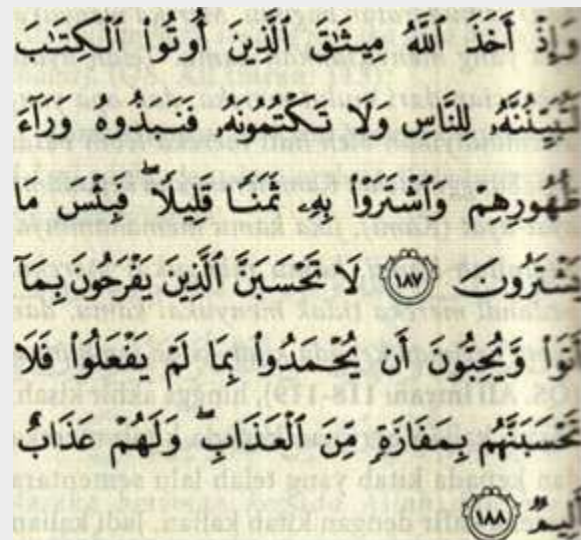 وَإِذْ أَخَذَ ٱللَّهُ مِيثَٰقَ ٱلَّذِينَ أُوتُوا۟ ٱلْكِتَٰبَ
لَتُبَيِّنُنَّهُۥ لِلنَّاسِ وَلَا تَكْتُمُونَهُۥ فَنَبَذُوهُ وَرَآءَ
ظُهُورِهِمْ وَٱشْتَرَوْا۟ بِهِۦ ثَمَنًا قَلِيلًا ۖ فَبِئْسَ مَا
يَشْتَرُونَ ١٨٧ لَا تَحْسَبَنَّ ٱلَّذِينَ يَفْرَحُونَ بِمَآ
أَتَوا۟ وَّيُحِبُّونَ أَن يُحْمَدُوا۟ بِمَا لَمْ يَفْعَلُوا۟ فَلَا
تَحْسَبَنَّهُم بِمَفَازَةٍ مِّنَ ٱلْعَذَابِ ۖ وَلَهُمْ عَذَابٌ
أَلِيمٌ ١٨٨